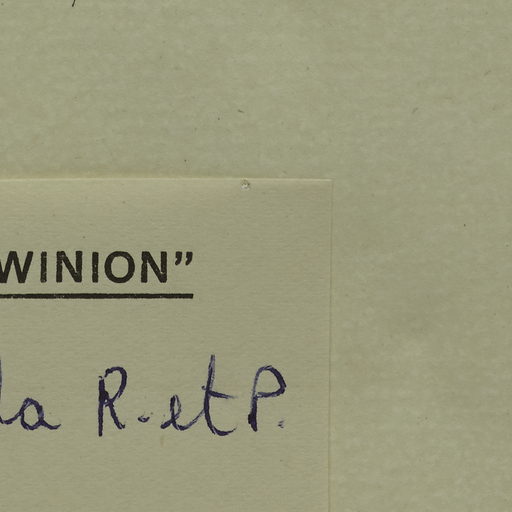 WINION”
la R. et P.